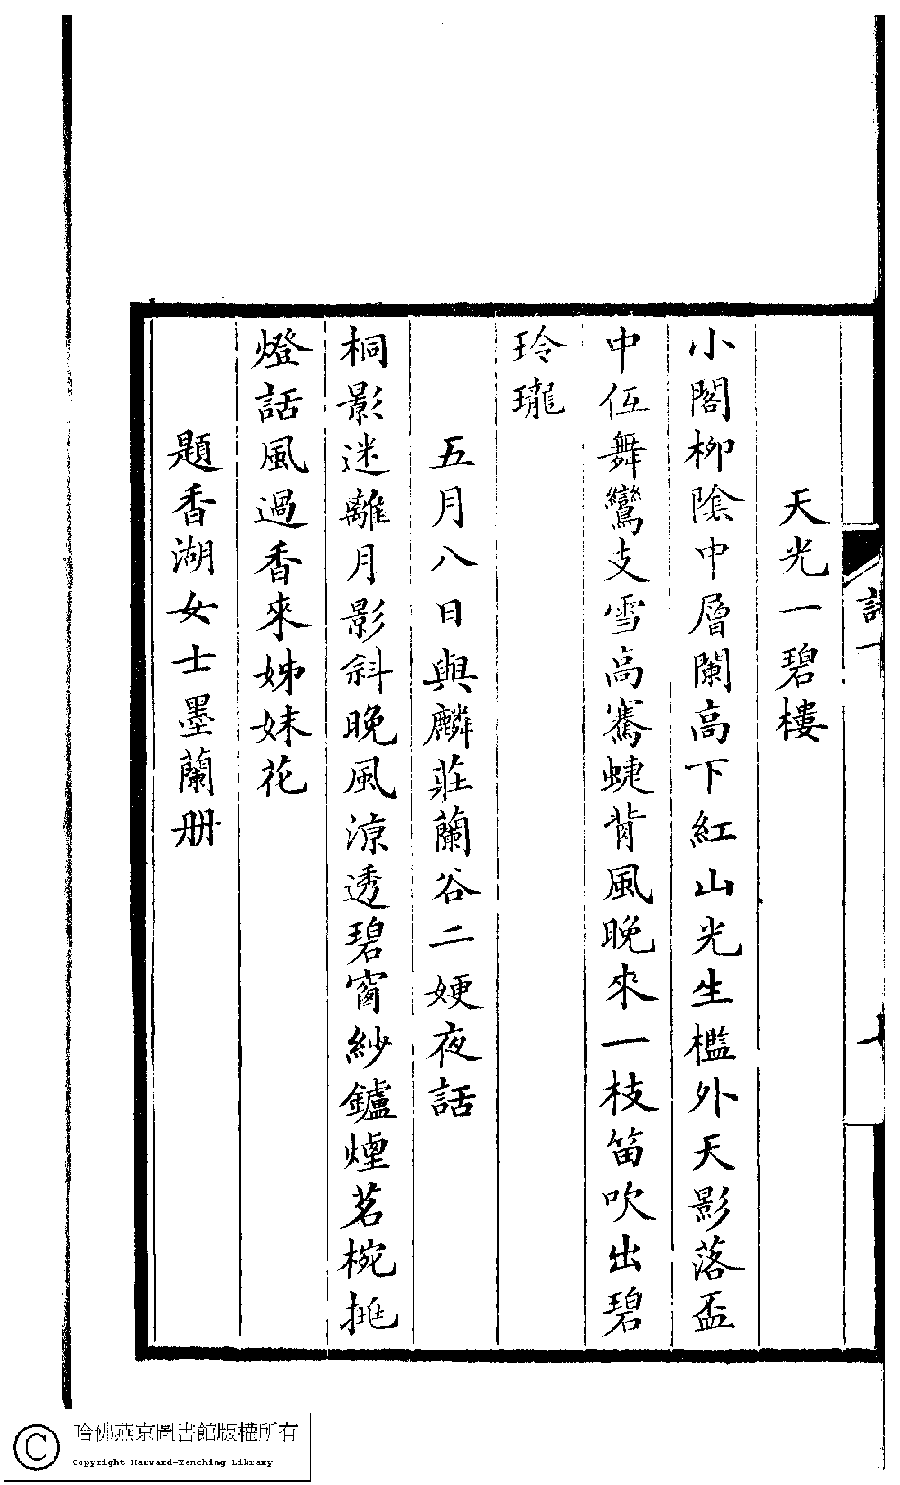 天光一碧樓
小閣柳陰中層闌高下紅山光生檻外天影落盃
中仾舞鸞支雪高騫蜨背風晚來一枝笛吹出碧
玲瓏
五月八日與麟莊蘭谷二㛐夜話
桐影迷離月影斜晚風涼透碧窗紗鑪煙茗椀挑
燈話風過香來姊妹花
題香湖女士墨蘭册
哈佛燕京圖書館版權所有
Copyright Harvard-Yenching Library